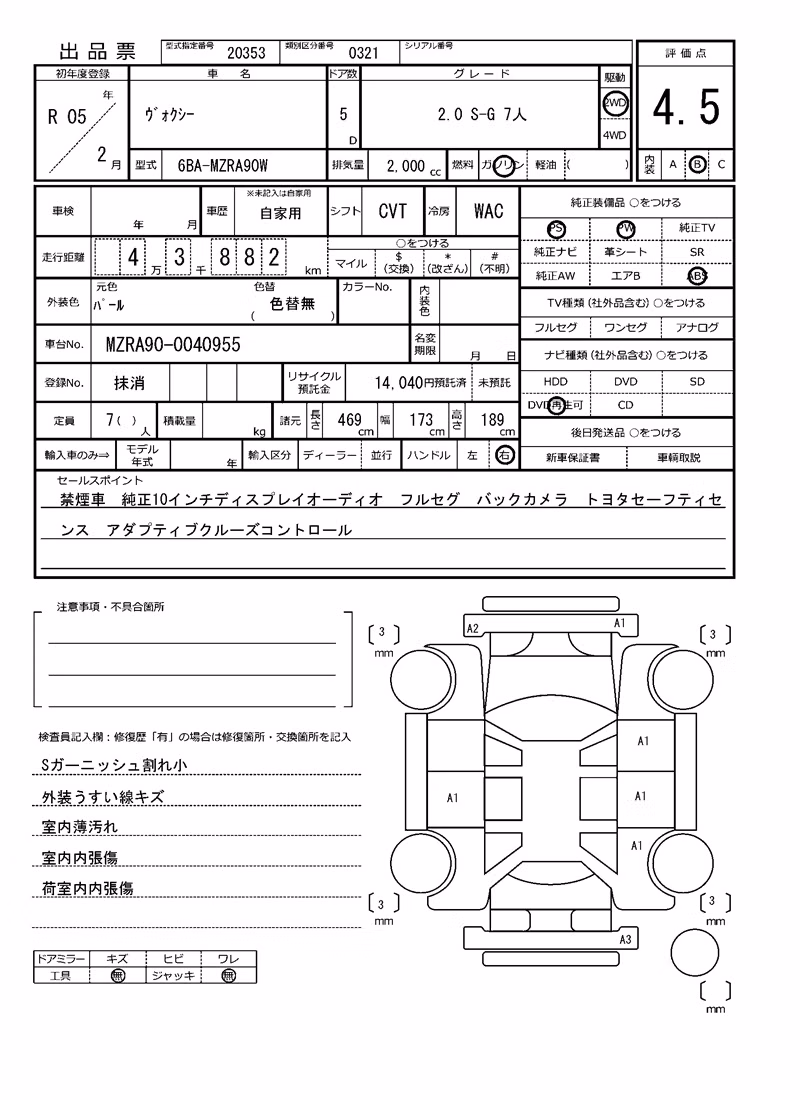 出品票 型式指定番号 20353 類別区分番号 0321 シリアル番号 評価点
初年度登録 車名 ドア数 グレード 駆動
R 05 年 2 月 ヴォクシー 5 D 2.0 S-G 7人 2WD 4WD 4.5
型式 6BA-MZRA90W 排気量 2,000 cc 燃料 ガソリン 軽油 ( ) 内装 A B C
車検 年 月 車歴 ※未記入は自家用 自家用 シフト CVT 冷房 WAC 純正装備品 ○をつける
PS PW 純正TV
走行距離 4 万 3 千 8 8 2 km ○をつける
マイル $ (交換) * (改ざん) # (不明)
純正ナビ 革シート SR
純正AW エアB ABS
外装色 元色 パール 色替 ( 色替無 ) カラーNo. 内装色
TV種類(社外品含む)○をつける
フルセグ ワンセグ アナログ
車台No. MZRA90-0040955 名変期限 月 日
ナビ種類(社外品含む)○をつける
登録No. 抹消 リサイクル預託金 14,040円預託済 未預託
HDD DVD SD
DVD再生可 CD
定員 7( ) 人 積載量 kg 諸元 長さ 469 cm 幅 173 cm 高さ 189 cm
後日発送品 ○をつける
輸入車のみ⇒ モデル年式 年 輸入区分 ディーラー 並行 ハンドル 左 右
新車保証書 車輌取説
セールスポイント
禁煙車 純正10インチディスプレイオーディオ フルセグ バックカメラ トヨタセーフティセ
ンス アダプティブクルーズコントロール
注意事項・不具合箇所
検査員記入欄：修復歴「有」の場合は修復箇所・交換箇所を記入
Sガーニッシュ割れ小
外装うすい線キズ
室内薄汚れ
室内内張傷
荷室内内張傷
ドアミラー キズ ヒビ ワレ
工具 無 ジャッキ 無
A2 A1
3 mm 3 mm
A1
A1 A1
A1
3 mm 3 mm
A3
mm